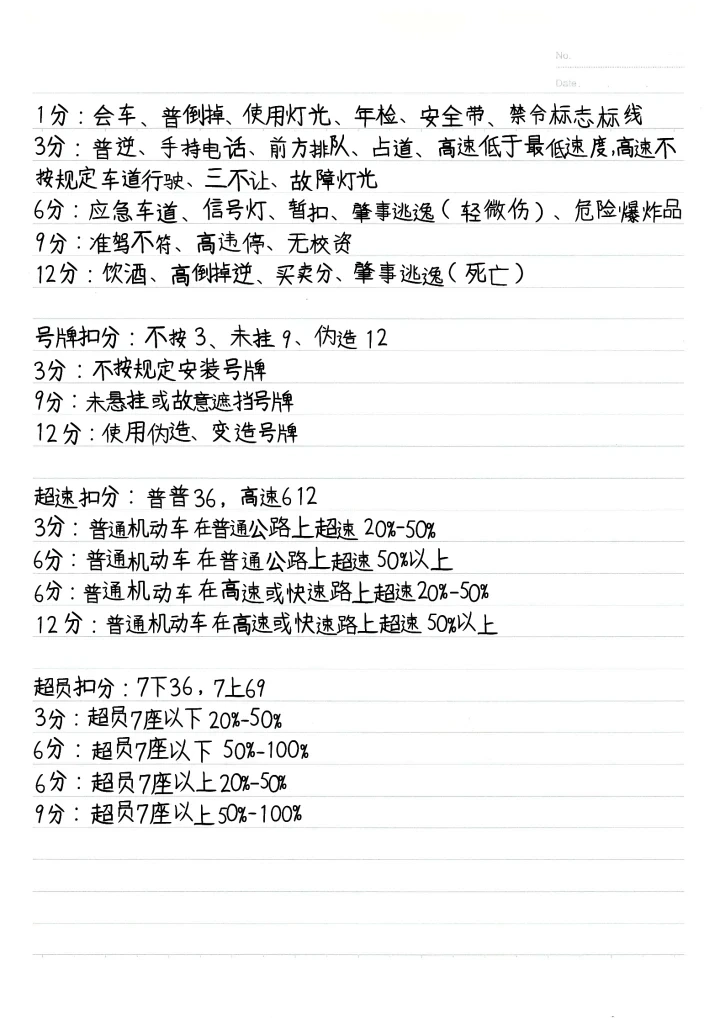 No.
Date.
1分：会车、普倒掉、使用灯光、年检、安全带、禁令标志标线
3分：普逆、手持电话、前方排队、占道、高速低于最低速度,高速不
按规定车道行驶、三不让、故障灯光
6分：应急车道、信号灯、暂扣、肇事逃逸（轻微伤）、危险爆炸品
9分：准驾不符、高违停、无校资
12分：饮酒、高倒掉逆、买卖分、肇事逃逸（死亡）
号牌扣分：不按3、未挂9、伪造12
3分：不按规定安装号牌
9分：未悬挂或故意遮挡号牌
12分：使用伪造、变造号牌
超速扣分：普普36，高速612
3分：普通机动车在普通公路上超速20%-50%
6分：普通机动车在普通公路上超速50%以上
6分：普通机动车在高速或快速路上超速20%-50%
12分：普通机动车在高速或快速路上超速50%以上
超员扣分：7下36，7上69
3分：超员7座以下20%-50%
6分：超员7座以下50%-100%
6分：超员7座以上20%-50%
9分：超员7座以上50%-100%